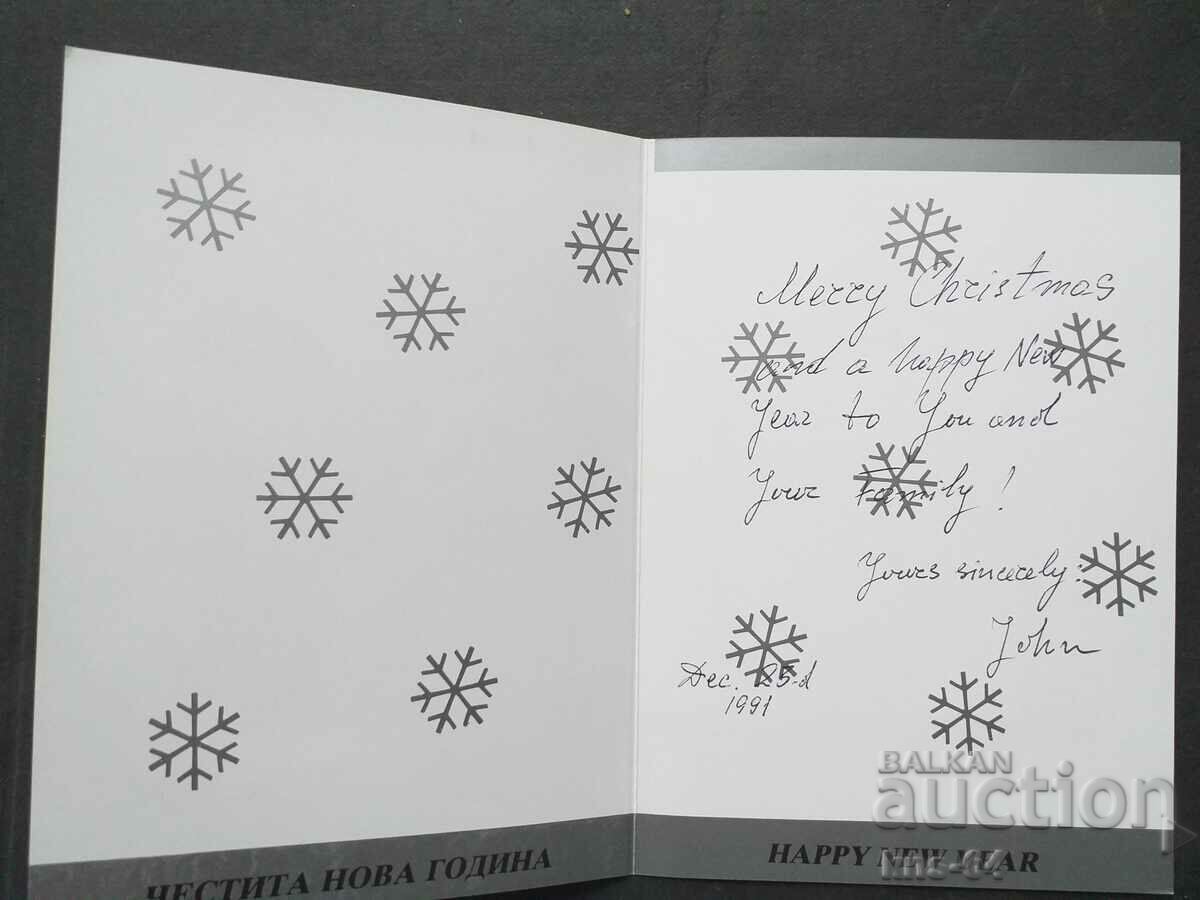 ЧЕСТИТА НОВА ГОДИНА
Merry Christmas
and a happy New
Year to You and
Your Family!
Yours sincerely:
John
Dec. 25-d
1991
HAPPY NEW YEAR
BALKAN
auction